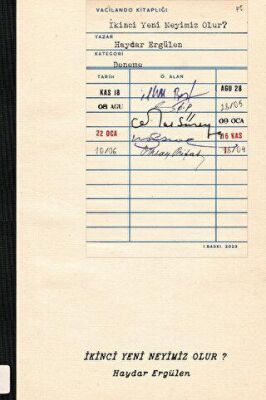 VACILANDO KİTAPLIĞI
İkinci Yeni Neyimiz Olur?
YAZAR
Haydar Ergülen
KATEGORİ
Deneme
TARİH Ö. ALAN
KAS 18 İlhan Berk AĞU 28
08 AĞU 23/09
Cemal Süreya 09 OCA
22 OCA 06 KAS
10/06 Oktay Rifat 15/04
1.BASKI. 2023
İKİNCİ YENİ NEYİMİZ OLUR ?
Haydar Ergülen